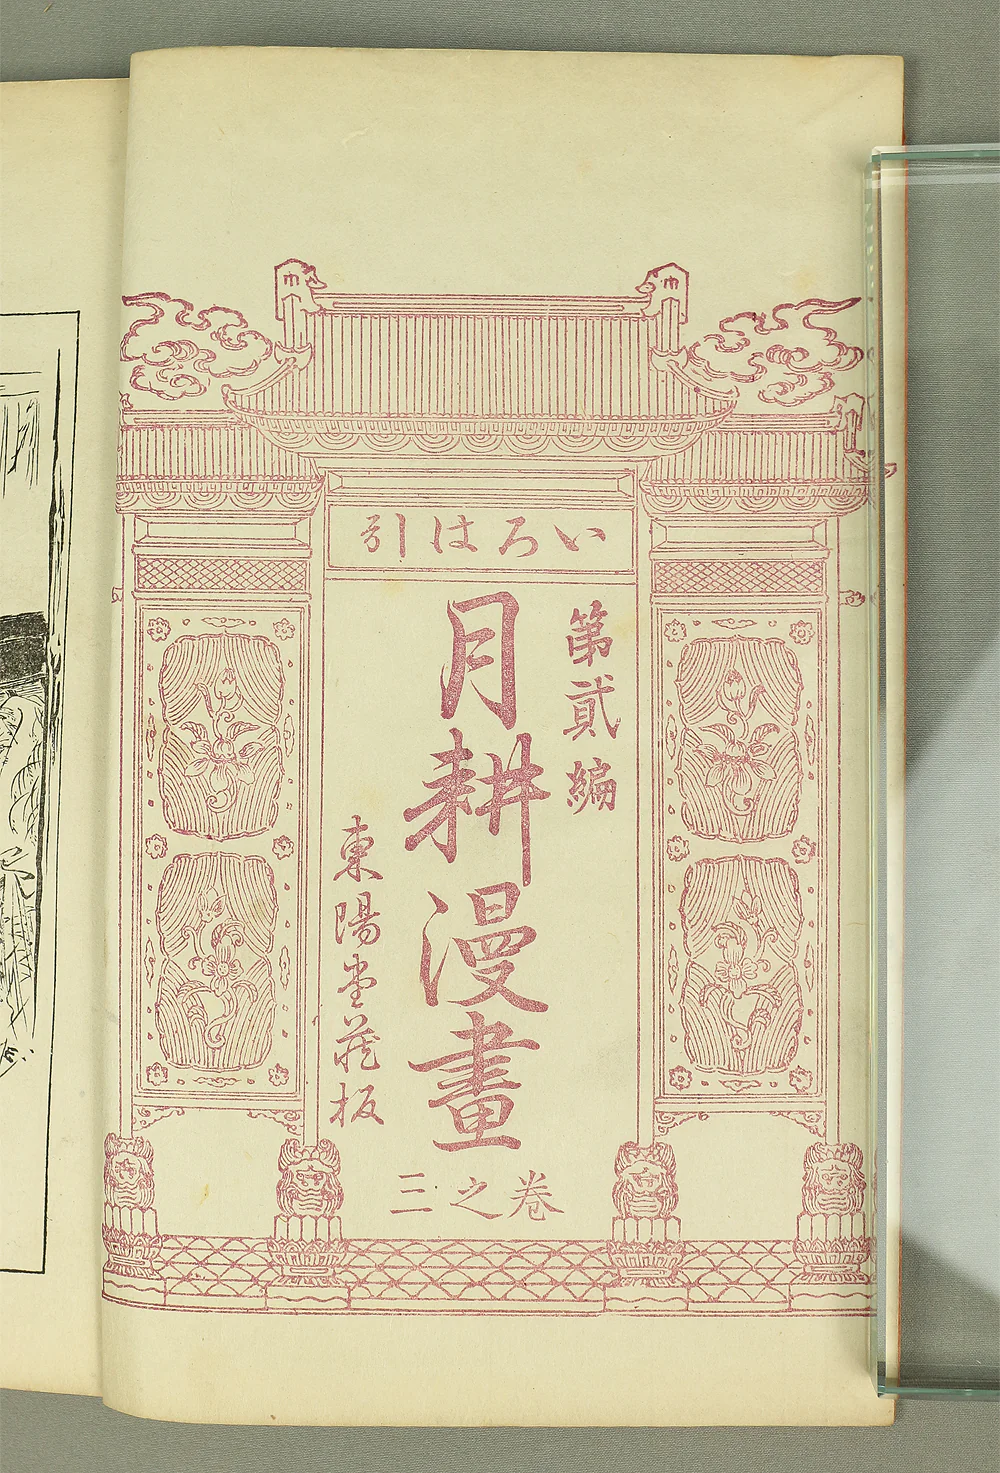 いろは引
第貳編
月耕漫畫
卷之三
東陽堂藏板